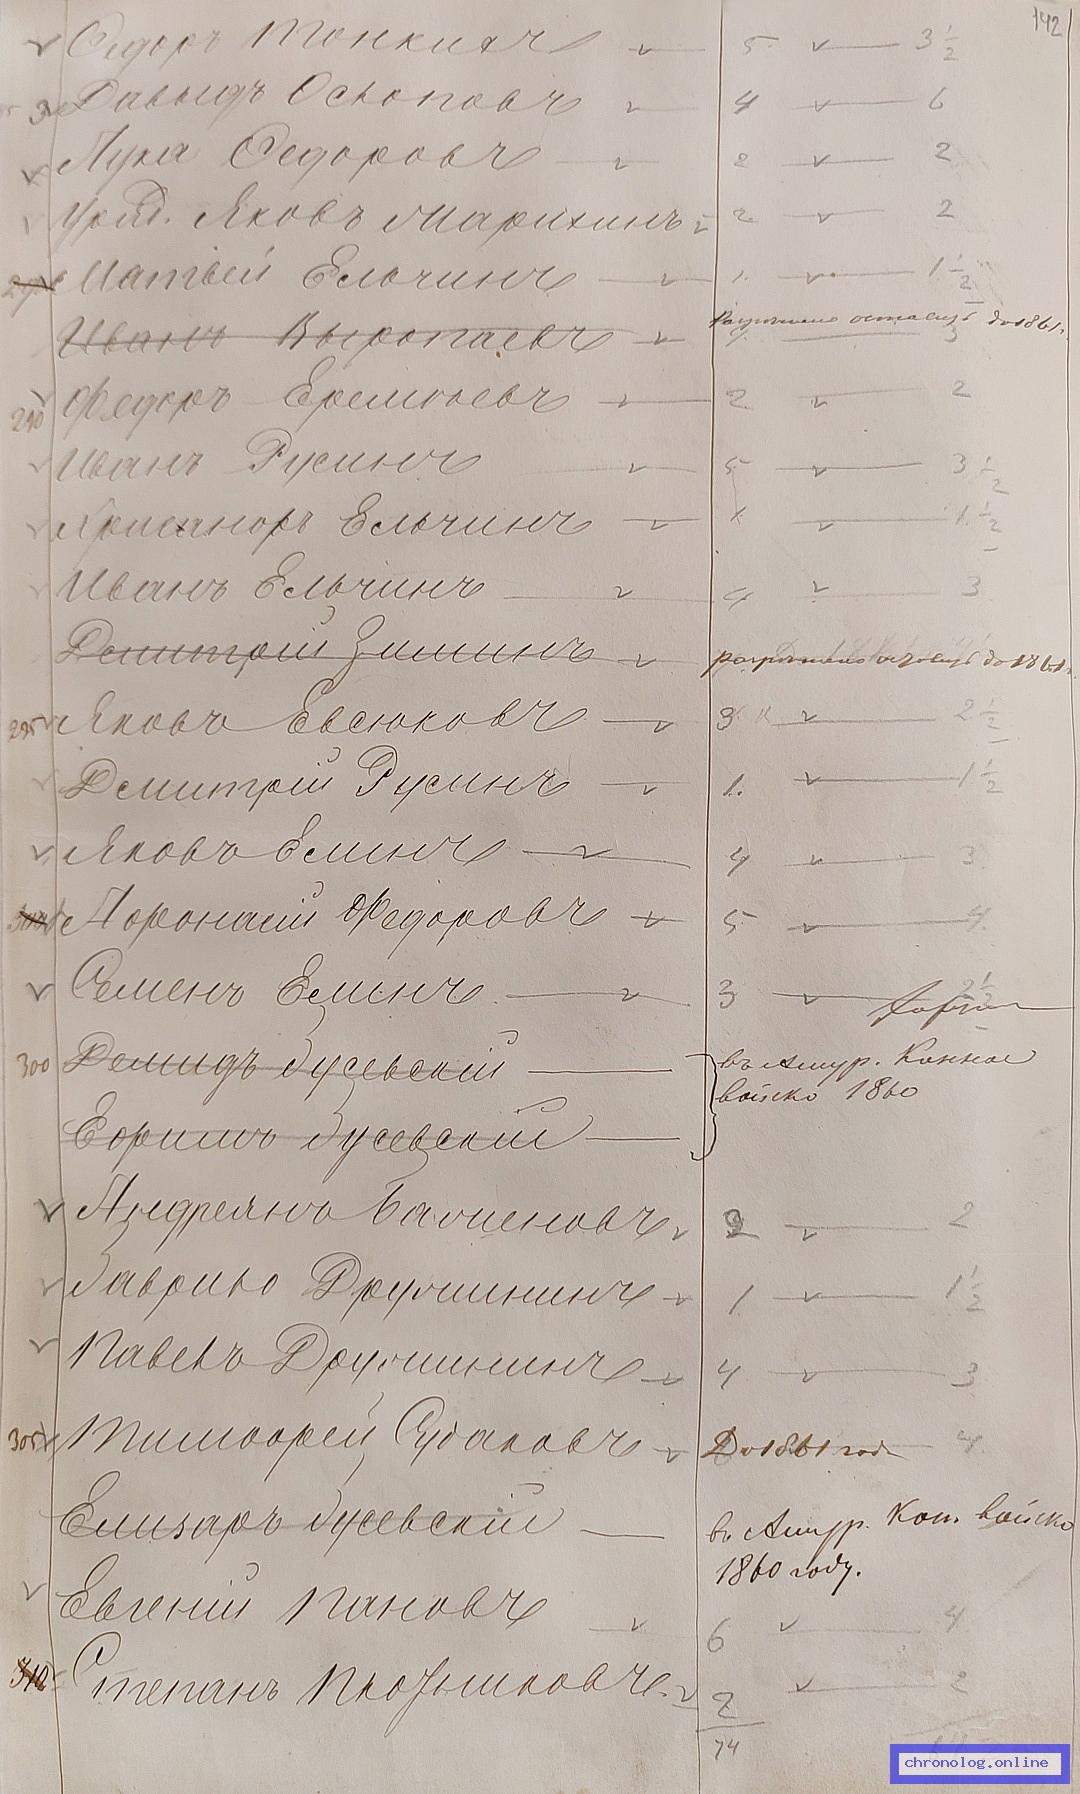 142
Ѳедоръ Тонкихъ 5 3 1/2
Давыдъ Осиповъ 4 6
Лука Ѳедоровъ 2 2
Яковъ Марихинъ 2 2
Матвѣй Ельчинъ 1. 1 1/2
Иванъ Выропаевъ до 1861 г. 3
290 Федоръ Еремѣевъ 2 2
Иванъ Русинъ 5 3 1/2
Хрисанфъ Ельчинъ 1 1/2
Иванъ Ельчинъ 4 3
Дмитрій Зиминъ до 1861 г.
295 Яковъ Евсюковъ 3 2 1/2
Дмитрій Русинъ 1. 1 1/2
Яковъ Еминъ 4 3
Афонасій Федоровъ 5 4
Семенъ Еминъ 3 2 1/2
300 Демидъ Гусевскій въ Амур. Конное
войско 1860
Ефимъ Гусевскій
Андреянъ Баженовъ 2 2
Гаврило Дружининъ 1 1 1/2
Павелъ Дружининъ 4 3
305 Тимофей Судаковъ До 1861 года 4
Елизаръ Гусевскій въ Амур. Кон. войско
1860 году.
Евгеній Пановъ 6 4
310 Степанъ Плотниковъ 2 2
74
chronolog.online